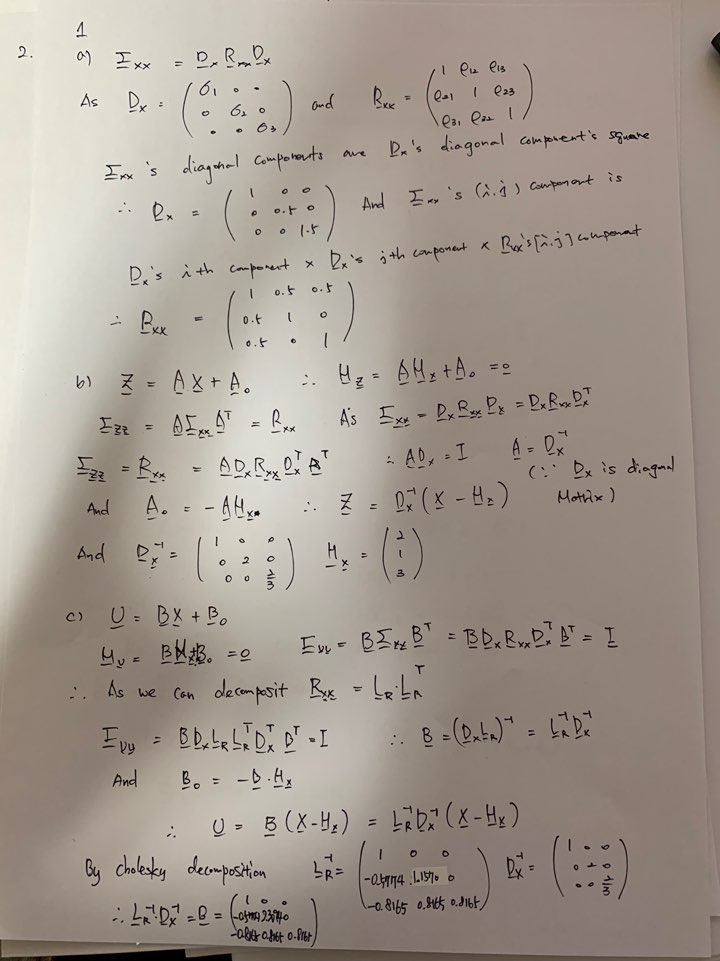 1
2. a) Σxx = Dx Rxx Dx
As Dx = (σ1 0 0 / 0 σ2 0 / 0 0 σ3) and Rxx = (1 ρ12 ρ13 / ρ21 1 ρ23 / ρ31 ρ22 1)
Σxx's diagonal components are Dx's diagonal component's square
∴ Dx = (1 0 0 / 0 0.5 0 / 0 0 1.5) And Σxx's (i,j) component is
Dx's i th component × Dx's j th component × Rxx's [i,j] component
∴ Rxx = (1 0.5 0.5 / 0.5 1 0 / 0.5 0 1)
b) Z = AX + A0 ∴ Mz = AMx + A0 = 0
Σzz = AΣxxA^T = Rxx As Σxx = Dx Rxx Dx = Dx Rxx Dx^T
Σzz = Rxx = A Dx Rxx Dx^T A^T ∴ ADx = I A = Dx^-1
(∵ Dx is diagonal
And A0 = -AMx ∴ Z = Dx^-1 (X - Mx) Matrix)
And Dx^-1 = (1 0 0 / 0 2 0 / 0 0 2/3) Mx = (2 / 1 / 3)
c) U = BX + B0
MU = BMx+B0 = 0 ΣUU = BΣxxB^T = B Dx Rxx Dx^T B^T = I
∴ As we can decomposit Rxx = LR·LR^T
ΣUU = B Dx LR LR^T Dx^T B^T = I ∴ B = (Dx LR)^-1 = LR^-1 Dx^-1
And B0 = -B·Mx
∴ U = B (X-Mx) = LR^-1 Dx^-1 (X-Mx)
By cholesky decomposition LR^-1 = (1 0 0 / -0.5774 1.1570 0 / -0.8165 0.8165 0.8165) Dx^-1 = (1 0 0 / 0 2 0 / 0 0 2/3)
∴ LR^-1·Dx^-1 = B = (1 0 0 / 0 / -0.8165 0.8165 0.8165)